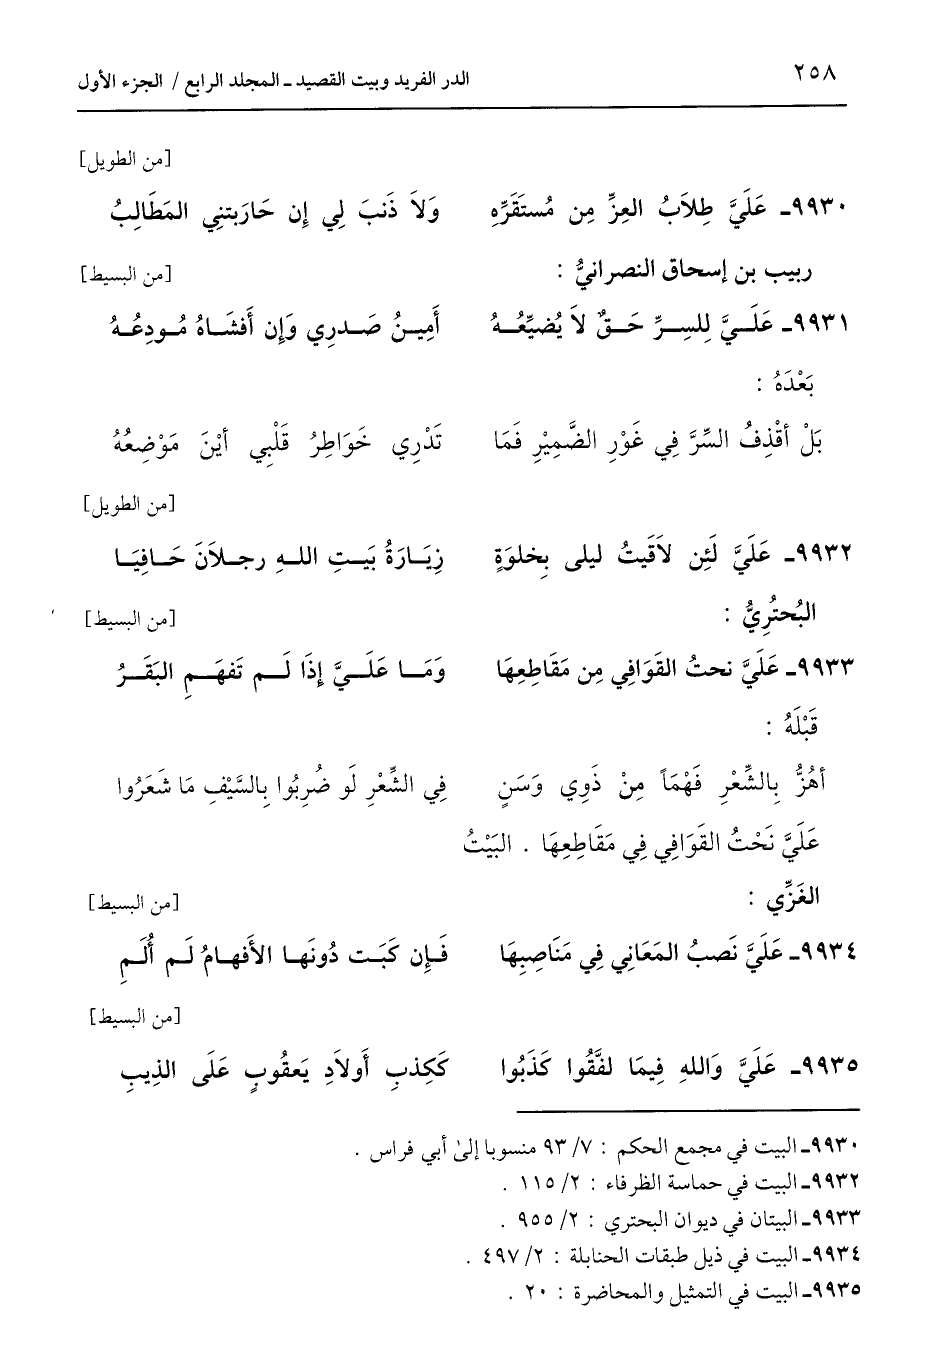 ٢٥٨ الدر الفريد وبيت القصيد ـ المجلد الرابع / الجزء الأول
[من الطويل]
٩٩٣٠ـ عَلَيَّ طِلاَبُ العِزِّ مِن مُستَقَرِّهِ وَلاَ ذَنبَ لِي إِن حَارَبتنِي المَطَالِبُ
ربيب بن إسحاق النصرانيُّ : [من البسيط]
٩٩٣١ـ عَلَـيَّ لِلسِـرِّ حَـقٌ لاَ يُضيِّعُـهُ أَمِينُ صَـدرِي وَإِن أَفشَـاهُ مُـودِعُـهُ
بَعْدَهُ :
بَلْ أقْذِفُ السِّرَّ فِي غَوْرِ الضَّمِيْرِ فَمَا تَدْرِي خَوَاطِرُ قَلْبِي أيْنَ مَوْضِعُهُ
[من الطويل]
٩٩٣٢ـ عَلَيَّ لَئِن لاَقَيتُ ليلى بِخلوَةٍ زِيَـارَةُ بَيـتِ اللـهِ رجـلاَنَ حَـافِيَـا
البُحتُرِيُّ : [من البسيط]
٩٩٣٣ـ عَلَيَّ نحتُ القَوَافِي مِن مَقَاطِعِهَا وَمَـا عَلَـيَّ إِذَا لَـم تَفهَـمِ البَقَـرُ
قَبْلَهُ :
أهُزُّ بِالشِّعْرِ فَهْمَاً مِنْ ذَوِي وَسَنٍ فِي الشِّعْرِ لَو ضُرِبُوا بِالسَّيْفِ مَا شَعَرُوا
عَلَيَّ نَحْتُ القَوَافِي فِي مَقَاطِعِهَا . البَيْتُ
الغَزِّي : [من البسيط]
٩٩٣٤ـ عَلَيَّ نَصبُ المَعَانِي فِي مَنَاصِبِهَا فَـإِن كَبَـت دُونَهـا الأَفهـامُ لَـم أُلَـمِ
[من البسيط]
٩٩٣٥ـ عَلَيَّ وَاللهِ فِيمَا لفَّقُوا كَذَبُوا كَكِذبِ أَولاَدِ يَعقُوبٍ عَلَى الذِيبِ
٩٩٣٠ـ البيت في مجمع الحكم : ٧/ ٩٣ منسوبا إلى أبي فراس .
٩٩٣٢ـ البيت في حماسة الظرفاء : ٢/ ١١٥ .
٩٩٣٣ـ البيتان في ديوان البحتري : ٢/ ٩٥٥ .
٩٩٣٤ـ البيت في ذيل طبقات الحنابلة : ٢/ ٤٩٧ .
٩٩٣٥ـ البيت في التمثيل والمحاضرة : ٢٠ .